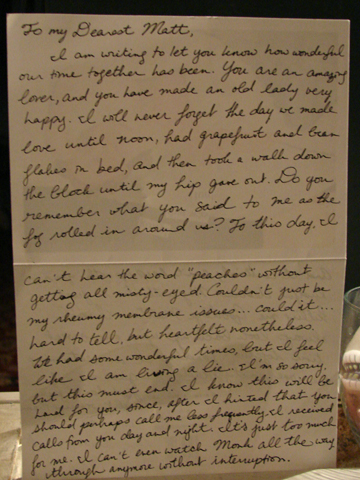 To my Dearest Matt,
I am writing to let you know how wonderful
our time together has been. You are an amazing
lover, and you have made an old lady very
happy. I will never forget the day we made
love until noon, had grapefruit and bran
flakes in bed, and then took a walk down
the block until my hip gave out. Do you
remember what you said to me as the
fog rolled in around us? To this day, I
can't hear the word "peaches" without
getting all misty-eyed. Couldn't just be
my rheumy membrane issues... could it...
hard to tell, but heartfelt nonetheless.
We had some wonderful times, but I feel
like I am living a lie. I'm so sorry,
but this must end. I know this will be
hard for you, since, after I hinted that you
should perhaps call me less frequently, I received
calls from you day and night. It's just too much
for me. I can't even watch Monk all the way
through anymore without interruption.